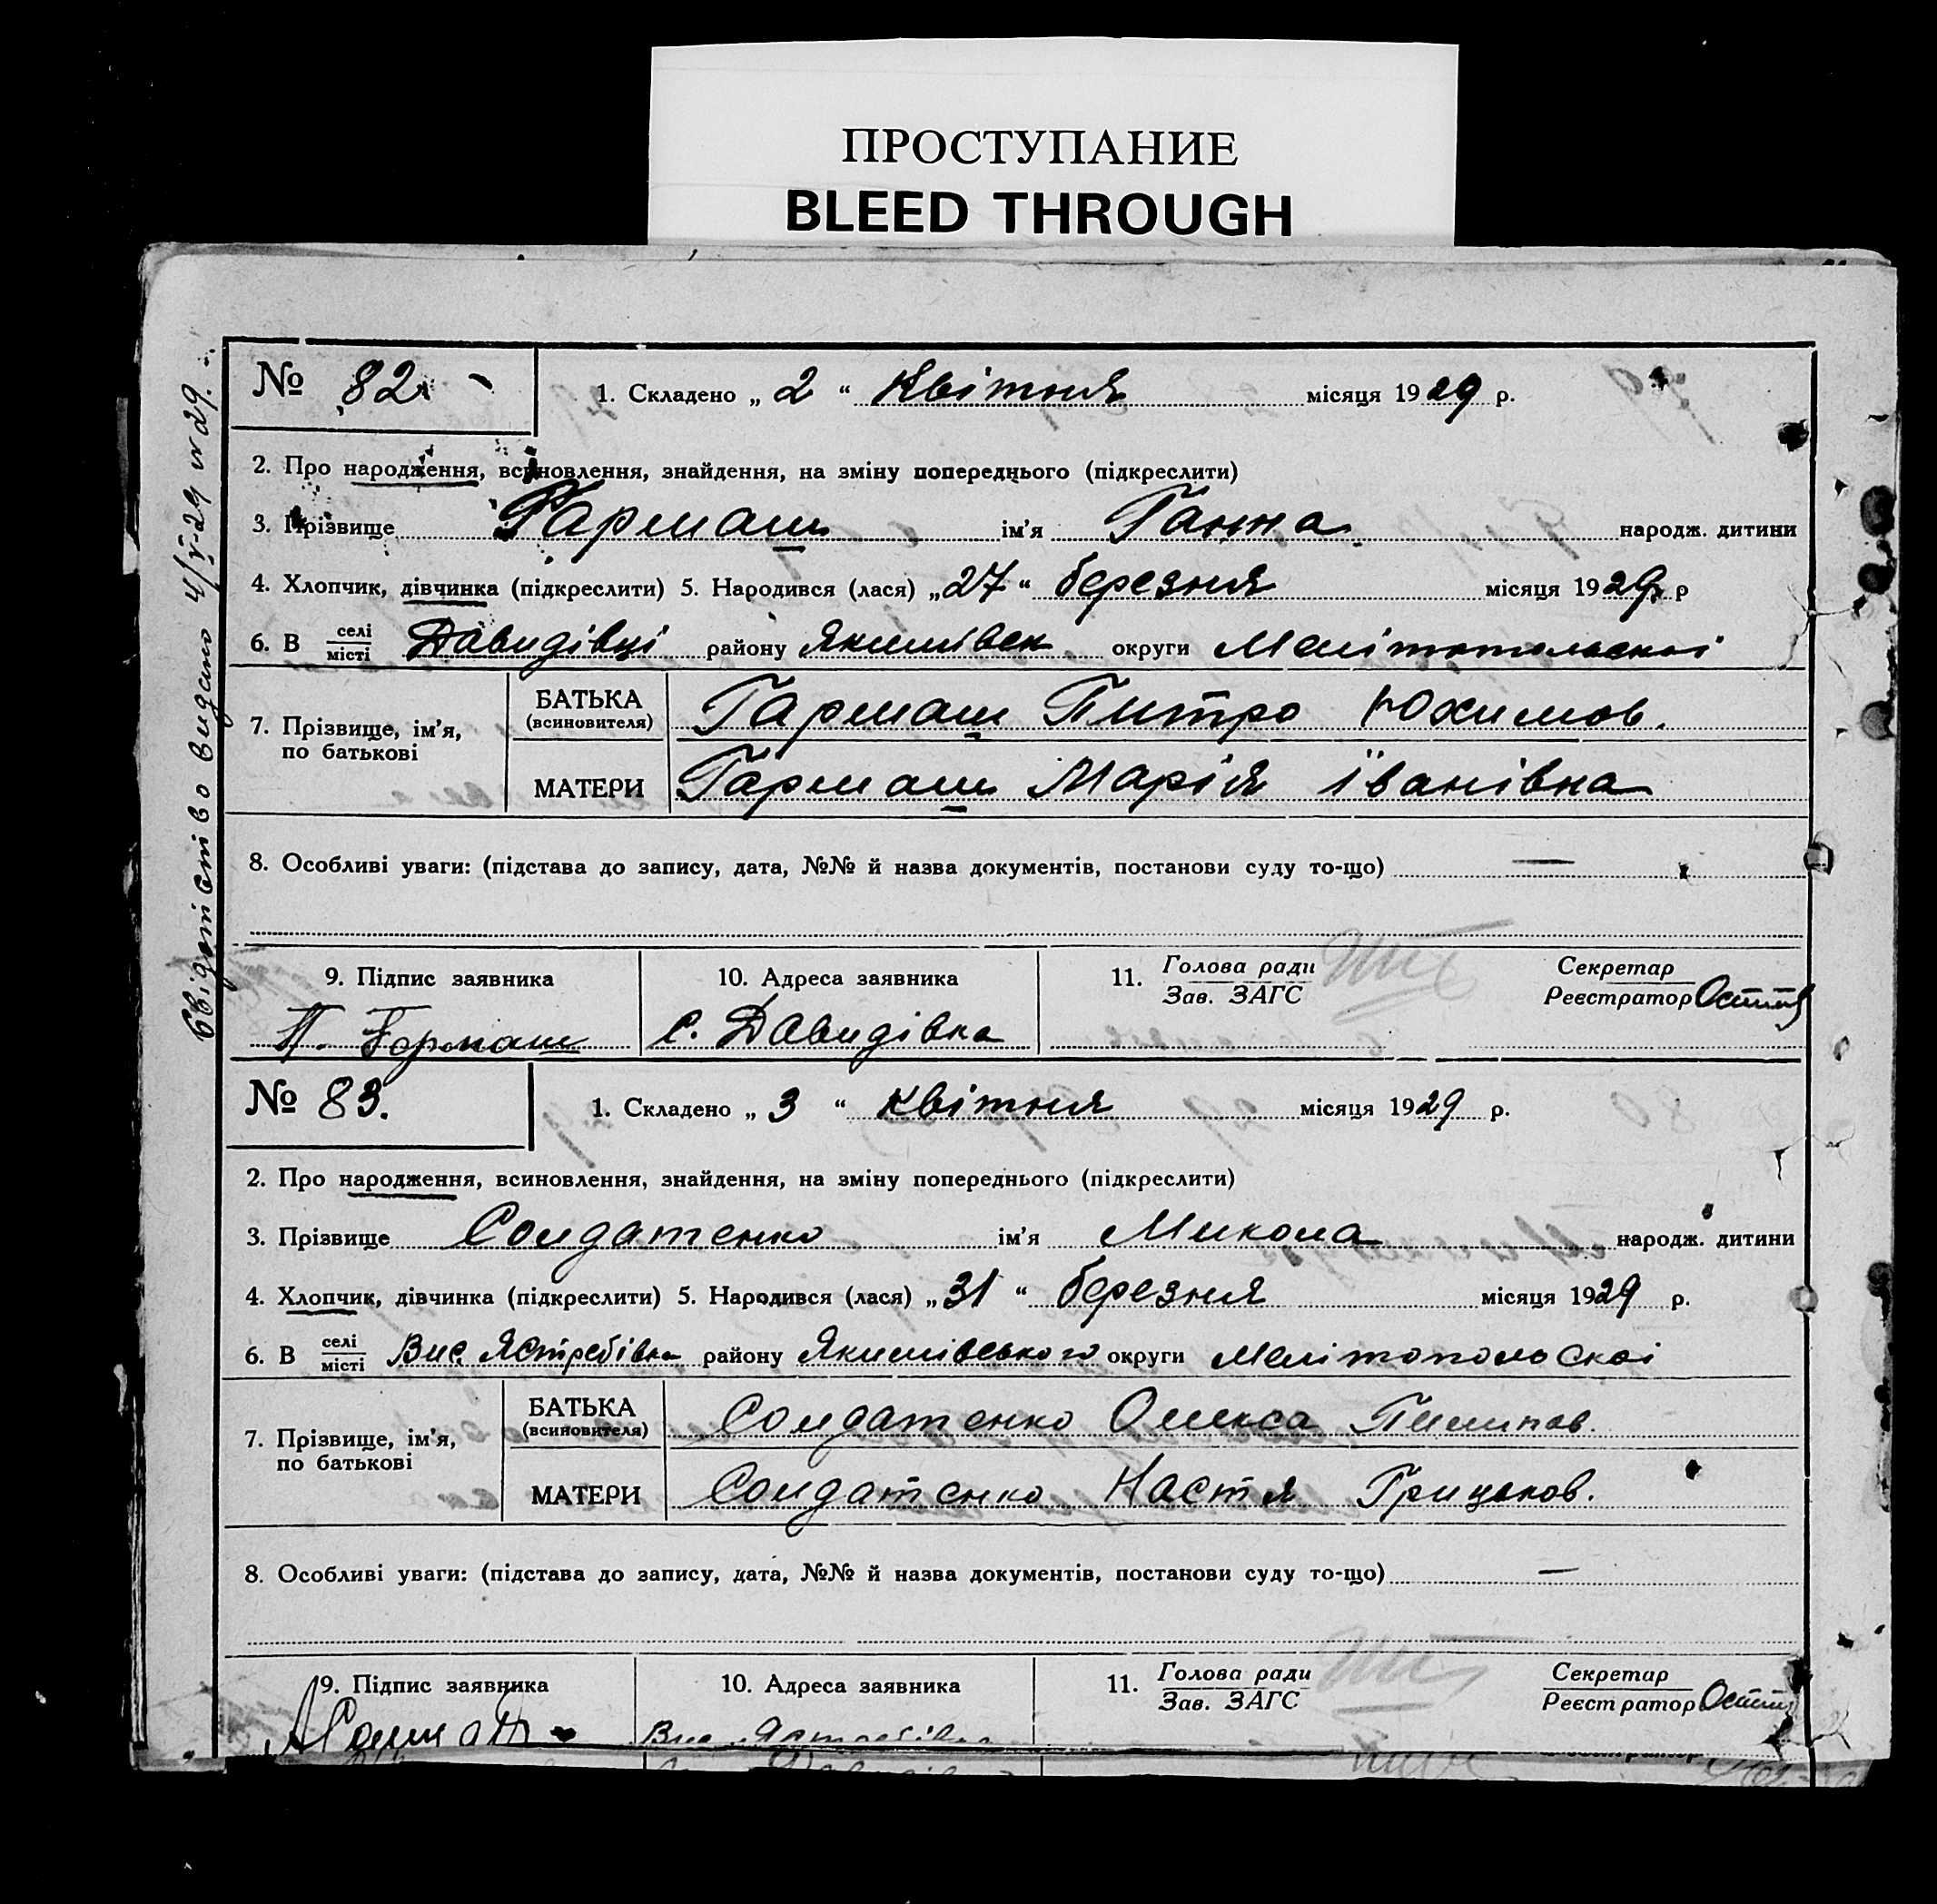 ПРОСТУПАНИЕ
BLEED THROUGH
№ 82
1. Складено „ 2 “ Квітня місяця 1929 р.
2. Про народження, всиновлення, знайдення, на зміну попереднього (підкреслити)
3. Прізвище Гармаш ім’я Ганна народж. дитини
4. Хлопчик, дівчинка (підкреслити) 5. Народився (лася) „27“ березня місяця 1929 р
6. В селі/місті Давидівці району Якимівськ округи Мелітопольскоі
7. Прізвище, ім’я, по батькові
БАТЬКА (всиновителя) Гармаш Питро Юхимов.
МАТЕРИ Гармаш Марія Іванівна
8. Особливі уваги: (підстава до запису, дата, №№ й назва документів, постанови суду то-що) —
9. Підпис заявника
10. Адреса заявника
11. Голова ради
Зав. ЗАГС
Секретар
Реєстратор
П. Гармаш
с. Давидівка
№ 83.
1. Складено „ 3 “ квітня місяця 1929 р.
2. Про народження, всиновлення, знайдення, на зміну попереднього (підкреслити)
3. Прізвище Солдатенко ім’я Микола народж. дитини
4. Хлопчик, дівчинка (підкреслити) 5. Народився (лася) „31“ березня місяця 1929 р.
6. В селі/місті Вис. Ястребівка району Якимівського округи Мелітопольскоі
7. Прізвище, ім’я, по батькові
БАТЬКА (всиновителя) Солдатенко Олекса Пилипов.
МАТЕРИ Солдатенко Настя Грицьков.
8. Особливі уваги: (підстава до запису, дата, №№ й назва документів, постанови суду то-що) —
9. Підпис заявника
10. Адреса заявника
11. Голова ради
Зав. ЗАГС
Секретар
Реєстратор
Вис. Ястребівка
Свідотство видано 4/V-29